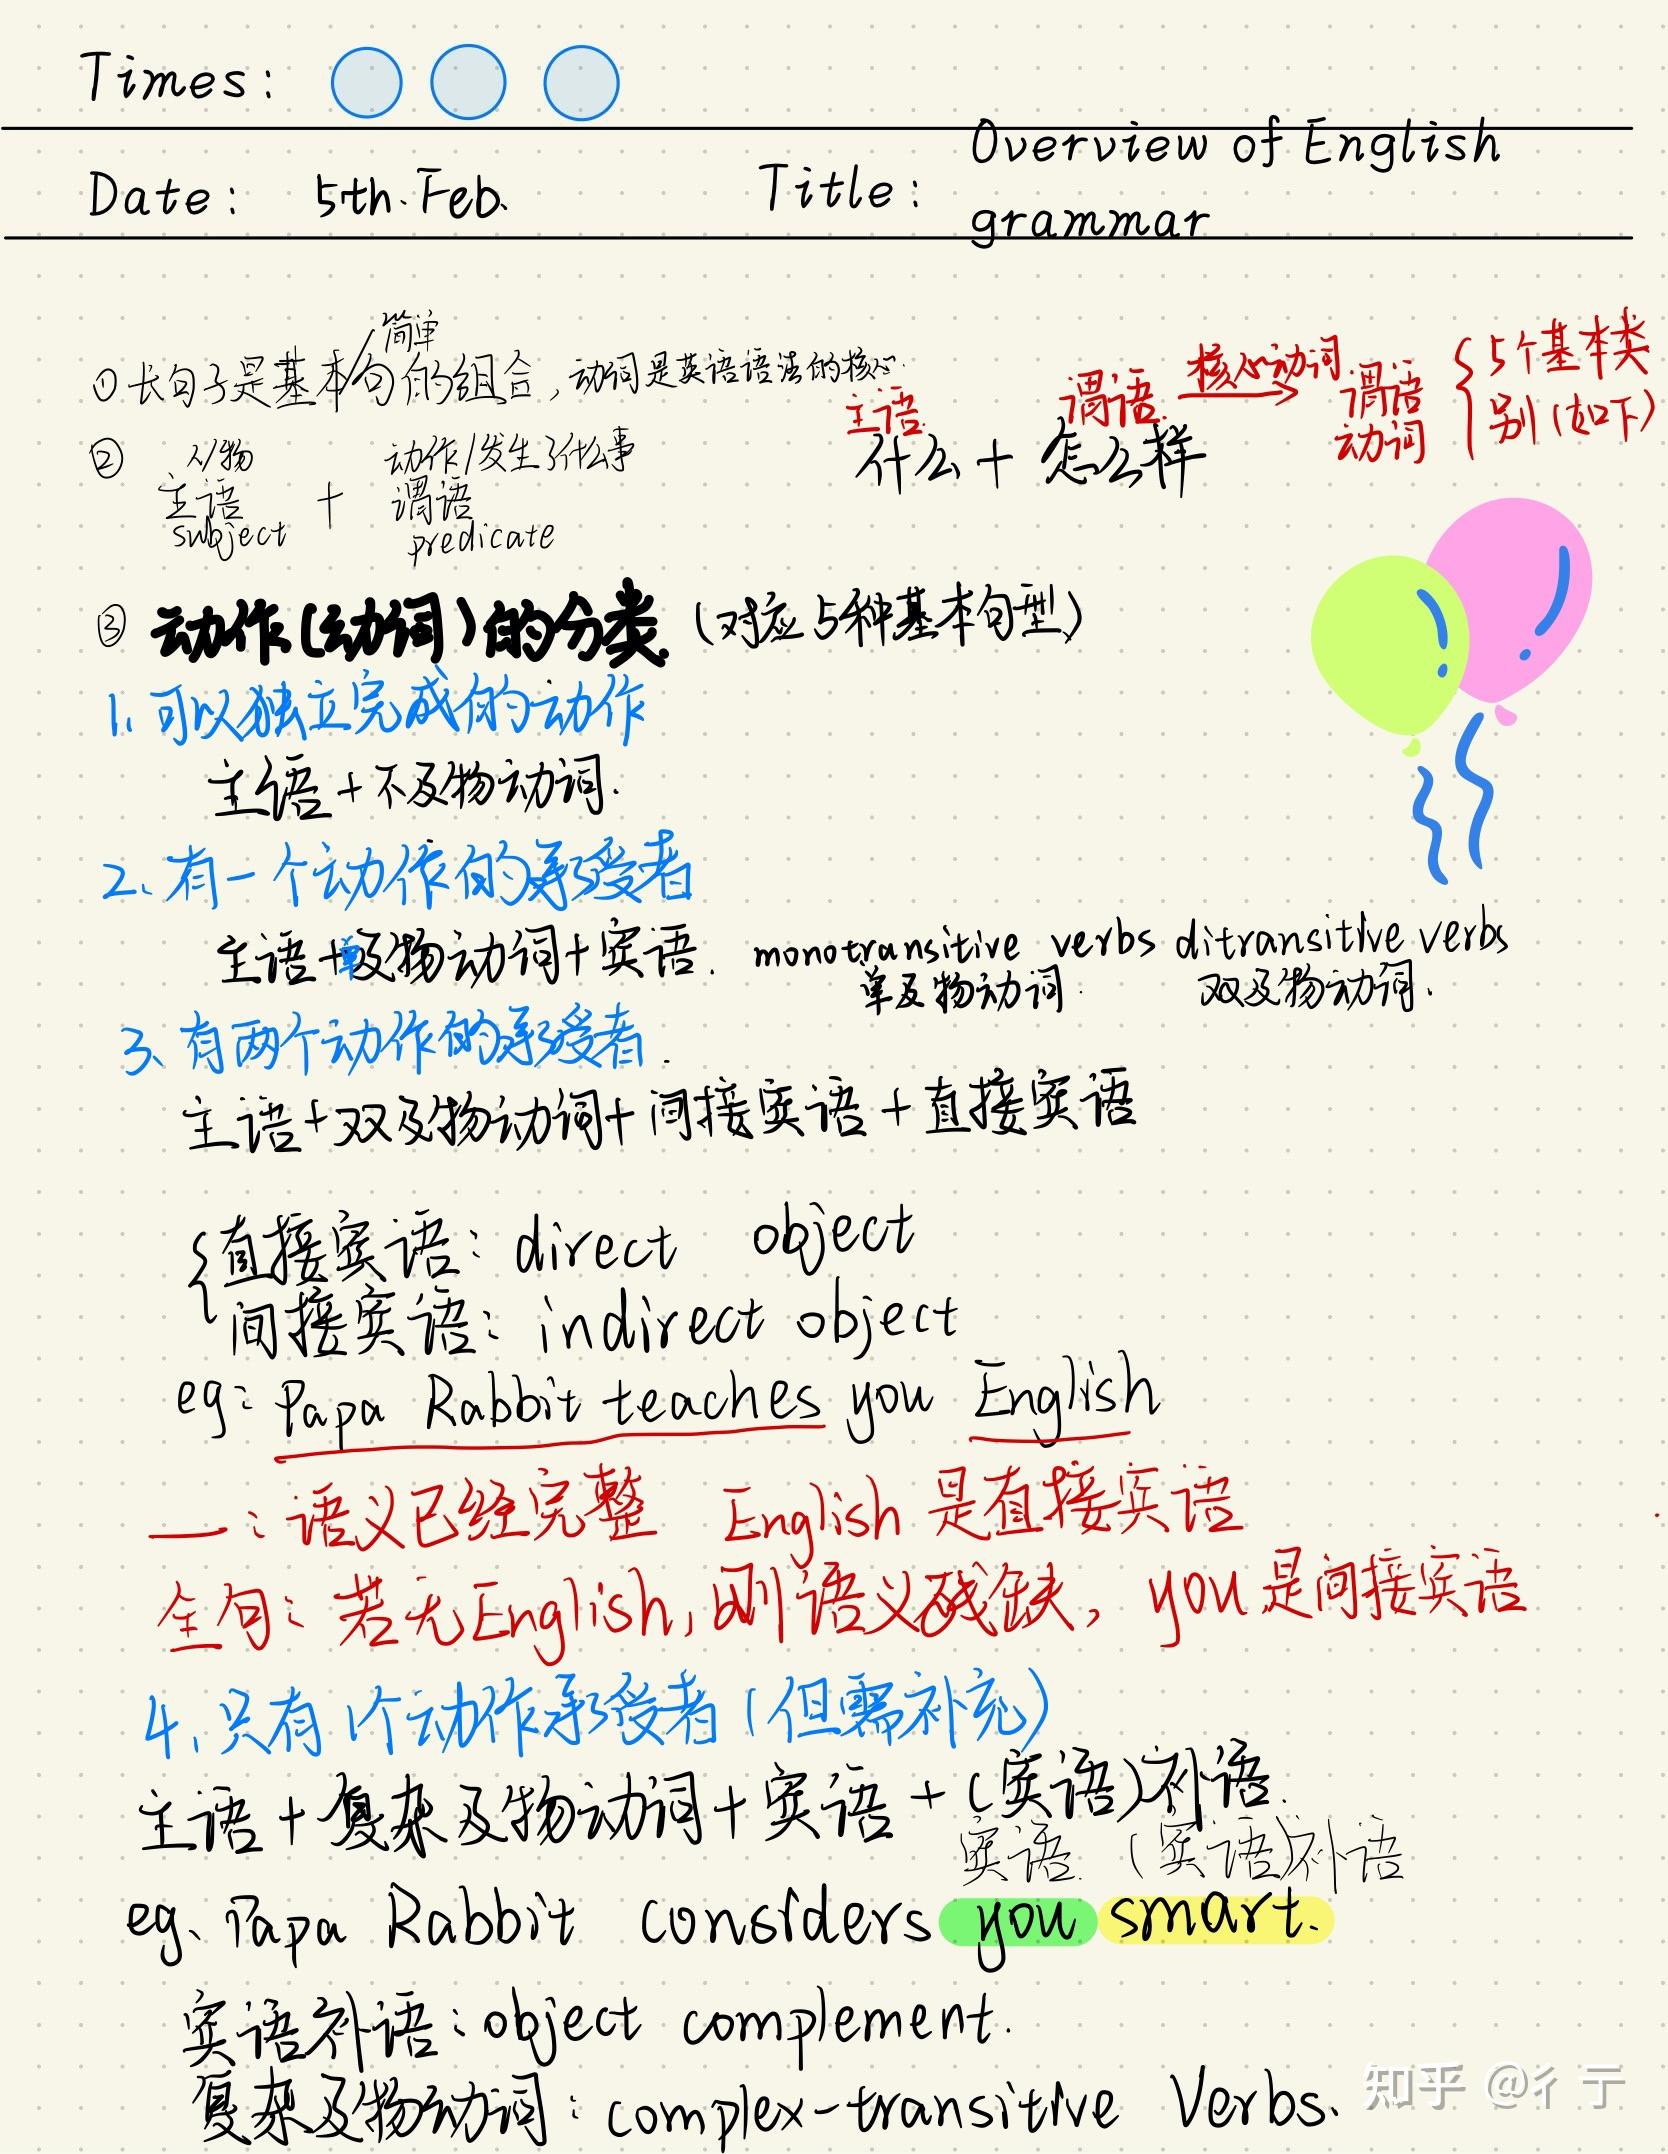 Times:
Date: 5th. Feb.
Title: Overview of English
grammar
简单
①长句子是基本句的组合,动词是英语语法的核心.
② 人/物 动作/发生了什么事
主语 + 谓语
subject predicate
主语 谓语 核心动词 谓语 5个基本类
什么+怎么样 动词 别(如下)
③ 动作(动词)的分类 (对应5种基本句型)
1.可以独立完成的动作
主语+不及物动词.
2、有一个动作的承受者
主语+单及物动词+宾语. monotransitive verbs ditransitive verbs
单及物动词. 双及物动词.
3、有两个动作的承受者.
主语+双及物动词+间接宾语+直接宾语
直接宾语: direct object
间接宾语: indirect object
eg: Papa Rabbit teaches you English
—:语义已经完整 English 是直接宾语
全句:若无English,则语义残缺, you 是间接宾语
4.只有1个动作承受者(但需补充)
主语+复杂及物动词+宾语+(宾语)补语.
宾语. (宾语)补语
eg. Papa Rabbit considers you smart.
宾语补语:object complement.
复杂及物动词:complex-transitive Verbs.
知乎 @彳亍